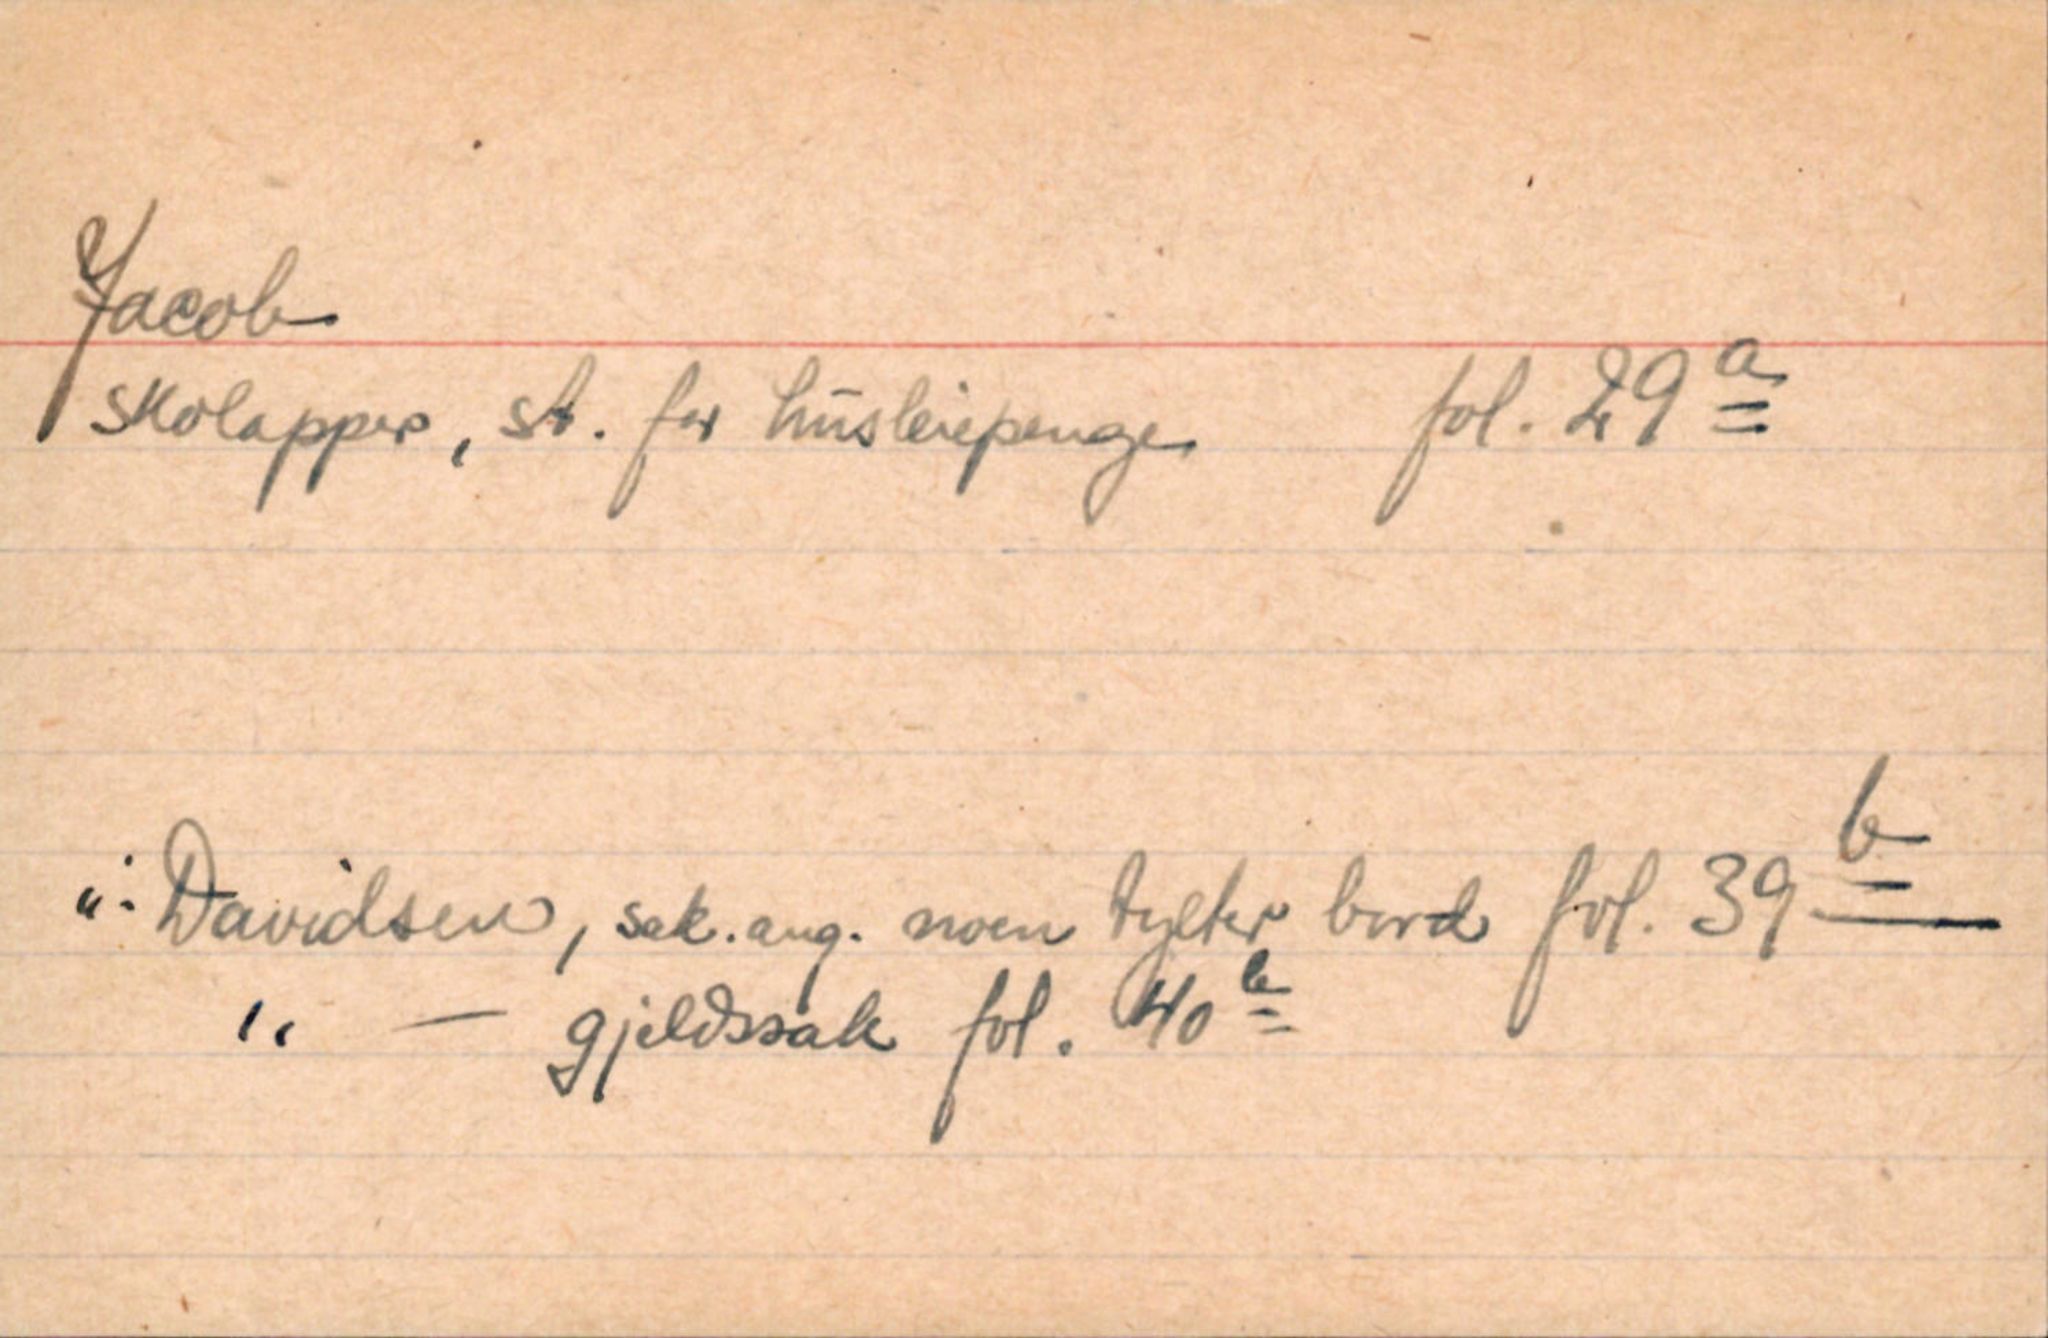 Jacob
Skolapper, st. for husleiepenge fol. 29 a
" - Davidsen, sak. ang. noen tylter bord fol. 39 b
" — gjeldssak fol. 40 b